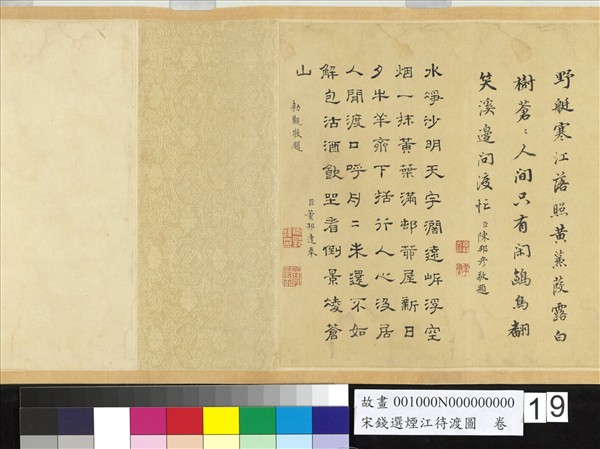 野艇寒江落照黄蒹葭露白
樹蒼〻人间只有闲鷗鳥翻
笑溪邊问渡忙 臣陳邦彦敬題
水凈沙明天宇濶遠岸浮空
烟一抹黃葉滿邨茆屋新日
夕牛羊齊下括行人心汲居
人閒渡口呼舟〻未還不如
解包沽酒飲坐看倒景凌蒼
山
臣董邦達奉
勅觀敬題
故畫 001000N000000000
宋錢選煙江待渡圖 卷
19